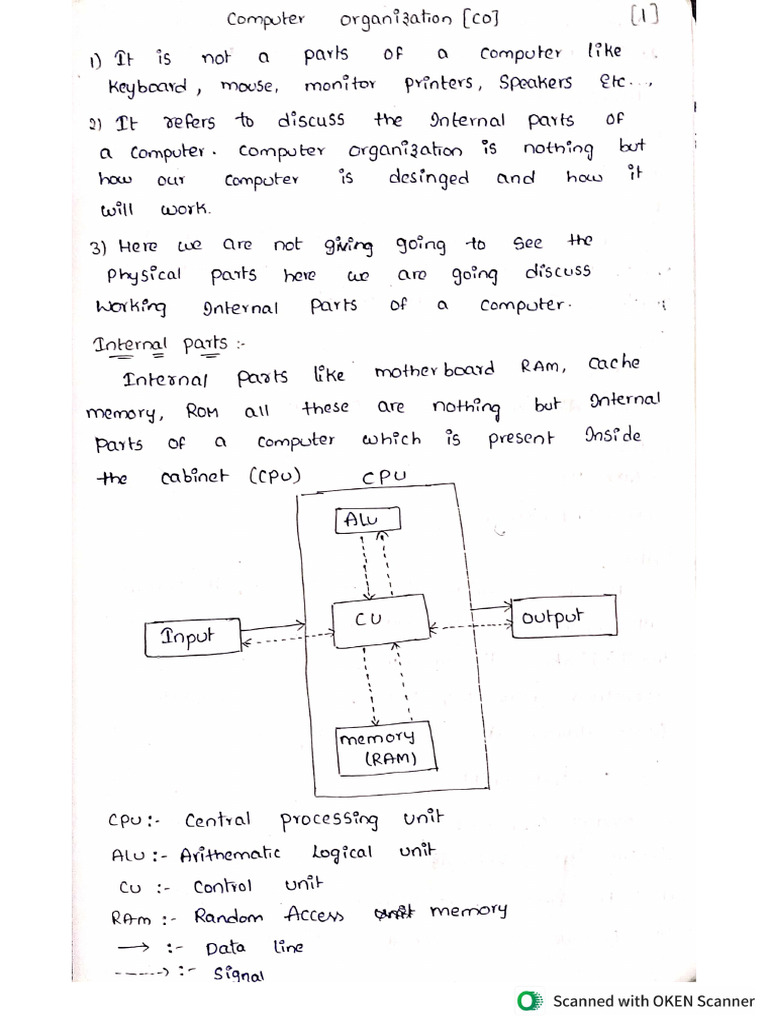 Computer organization [CO] [1]
1) It is not a parts of a computer like
keyboard, mouse, monitor printers, speakers etc...,
2) It refers to discuss the Internal parts of
a computer. computer organization is nothing but
how our computer is desinged and how it
will work.
3) Here we are not giving going to see the
physical parts here we are going discuss
working Internal parts of a computer.
Internal parts :-
Internal parts like motherboard RAM, cache
memory, ROM all these are nothing but Internal
parts of a computer which is present Inside
the cabinet (CPU) CPU
ALU
CU
Input
output
memory
(RAM)
CPU :- Central processing unit
ALU :- Arithematic Logical unit
CU :- Control unit
RAM :- Random Access unit memory
→ :- Data line
-----> :- Signal
Scanned with OKEN Scanner